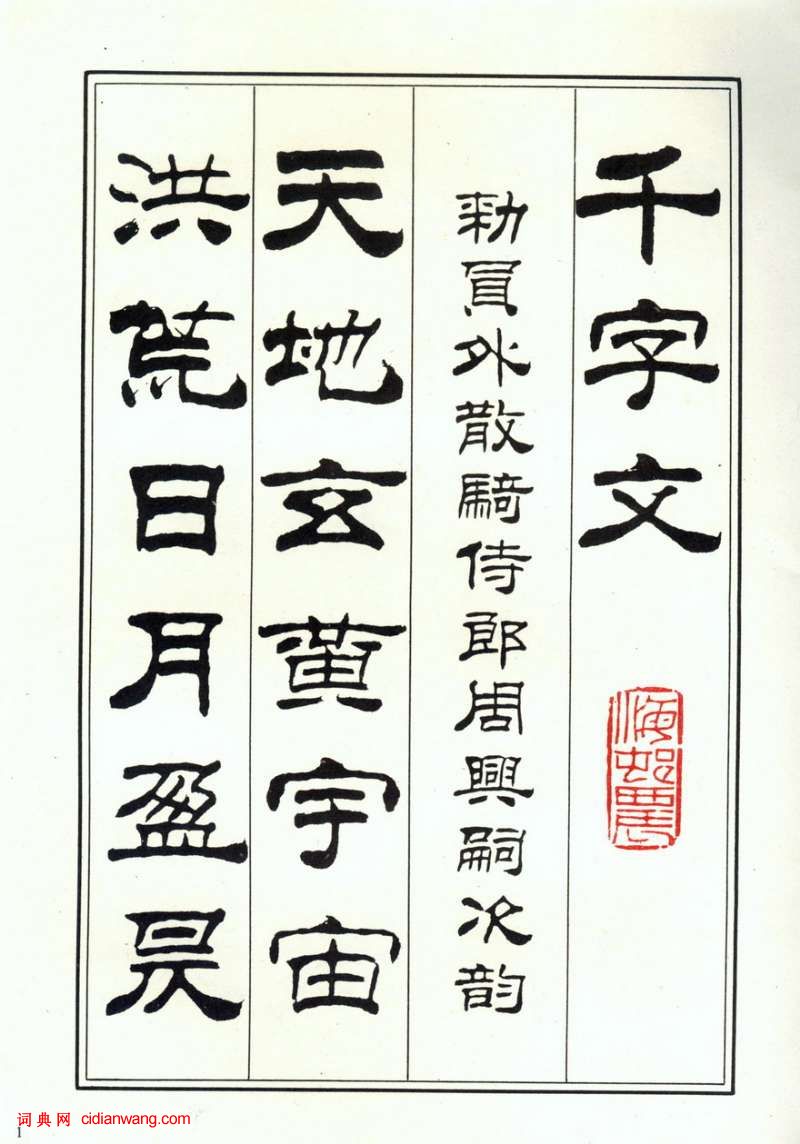 千字文
勅員外散騎侍郎周興嗣次韵
天地玄黃宇宙
洪荒日月盈昃
词典网 cidianwang.com
1